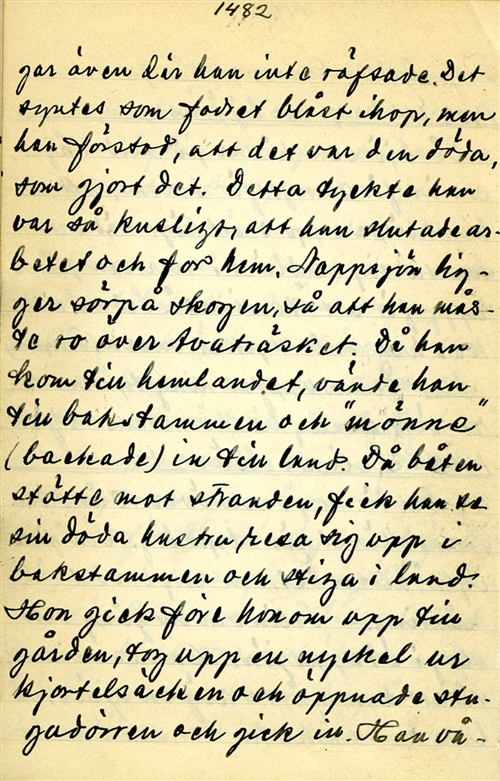 1482
gar även där han inte räfsade. Det
syntes som fodret blåst ihop, men
han förstod, att det var den döda,
som gjort det. Detta tyckte han
var så kusligt, att han slutade ar-
betet och for hem. Nappsjön lig-
ger sörpå skogen, så att han mås-
te ro över Avaträsket. Då han
kom till hemlandet, vände han
till bakstammen och "mönne"
(backade) in till land. Då båten
stötte mot stranden, fick han se
sin döda hustru resa sig upp i
bakstammen och stiga i land.
Hon gick före honom upp till
gården, tog upp en nyckel ur
kjortelsäcken och öppnade stu-
gudörren och gick in. Han vå-